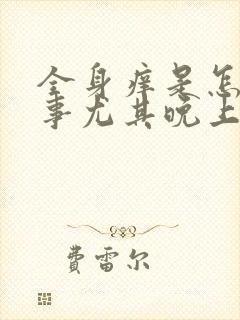 全身痒是怎
事尤其晚上
費雷尔